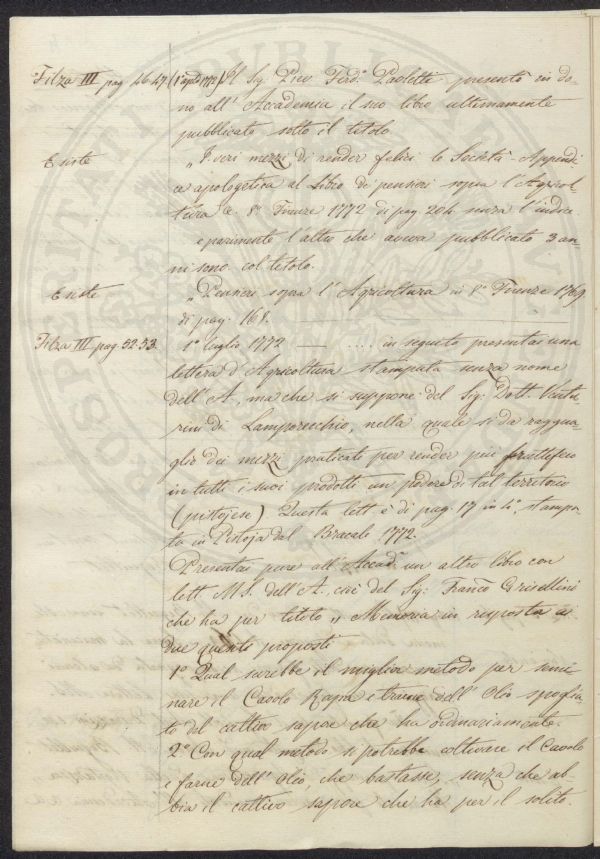 Filza III pag. 46-47 (1° aprile 1772) Il Sig. Piev. Ferd.° Paoletti presentò in do-
no all' Accademia il suo libro ultimamente
pubblicato sotto il titolo
Esiste „I veri mezzi di render felici le Società - Appendi
ce apologetica al Libro di pensieri sopra l'Agricol-
tura in 8° Firenze 1772 di pag. 204 senza l'indice
e parimente l'altro che aveva pubblicato 3 an-
ni sono col titolo.
Esiste „Pensieri sopra l'Agricoltura in 8° Firenze 1769
di pag. 168.
Filza III pag. 52-53. 1° luglio 1772 — .... in seguito presentai una
lettera d'Agricoltura stampata senza nome
dell'A, ma che si suppone del Sig. Dott. Ventu
rini di Lamporecchio, nella quale si da raggua-
glio dei mezzi praticati per render più fruttifero
in tutti i suoi prodotti un podere di tal territorio
(pistojese) Questa lett. è di pag. 17 in 4° stampa-
ta in Pistoja dal Bracali 1772.
Presentai pure all'Accad. un altro libro con
lett. MS. dell'A., cioè del Sig. Franco Griselini
che ha per titolo „ Memoria in risposta ai
due quesiti proposti
1° Qual sarebbe il miglior metodo per semi
nare il Cavolo Rapa e trarne dell'Olio spoglia
to del cattivo sapore che ha ordinariamente.
2° Con qual metodo si potrebbe coltivare il Cavolo
e farne dell'Olio, che bastasse, senza che ab-
bia il cattivo sapore che ha per il solito.